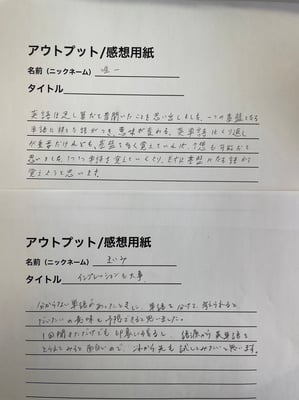 アウトプット/感想用紙
名前（ニックネーム） 唯一
タイトル
英語は足し算だと昔聞いたことを思い出しました。一つの基盤となる
単語に様々な語がつき、意味が変わる。英単語はくり返し
が大事だけれども、基盤を多く覚えていれば、予想も可能だと
思いました。1つ1つ単語を覚えていくより、まずは基盤になる語から
覚えようと思います。
アウトプット/感想用紙
名前（ニックネーム）
タイトル インプレッションも大事
分からない単語があったときに、単語を分けて、考えられると
だいたいの意味を予想できると思いました。
1回聞いただけでも印象に残るし、語源から英単語を
とらえてみると面白いので、これから先も試してみたいと思います。